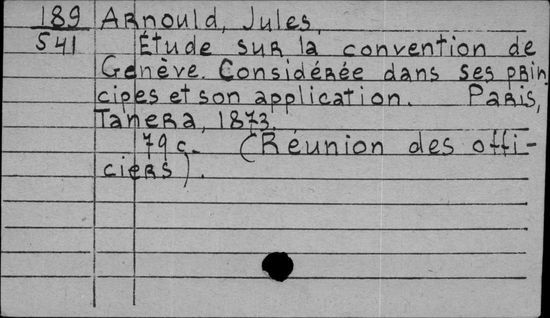 189 Arnould, Jules,
541 Étude sur la convention de
Genève. Considérée dans ses prin
cipes et son application. Paris,
Tanera, 1873.
79 c. (Réunion des offi-
ciers).